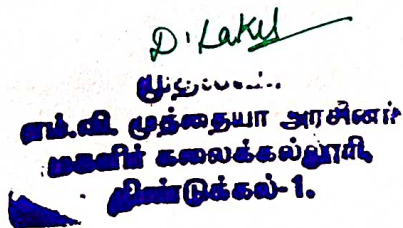 D. Lakshmi
முதல்வர்
எம்.வி. முத்தையா அரசினர்
மகளிர் கலைக்கல்லூரி,
திண்டுக்கல்-1.